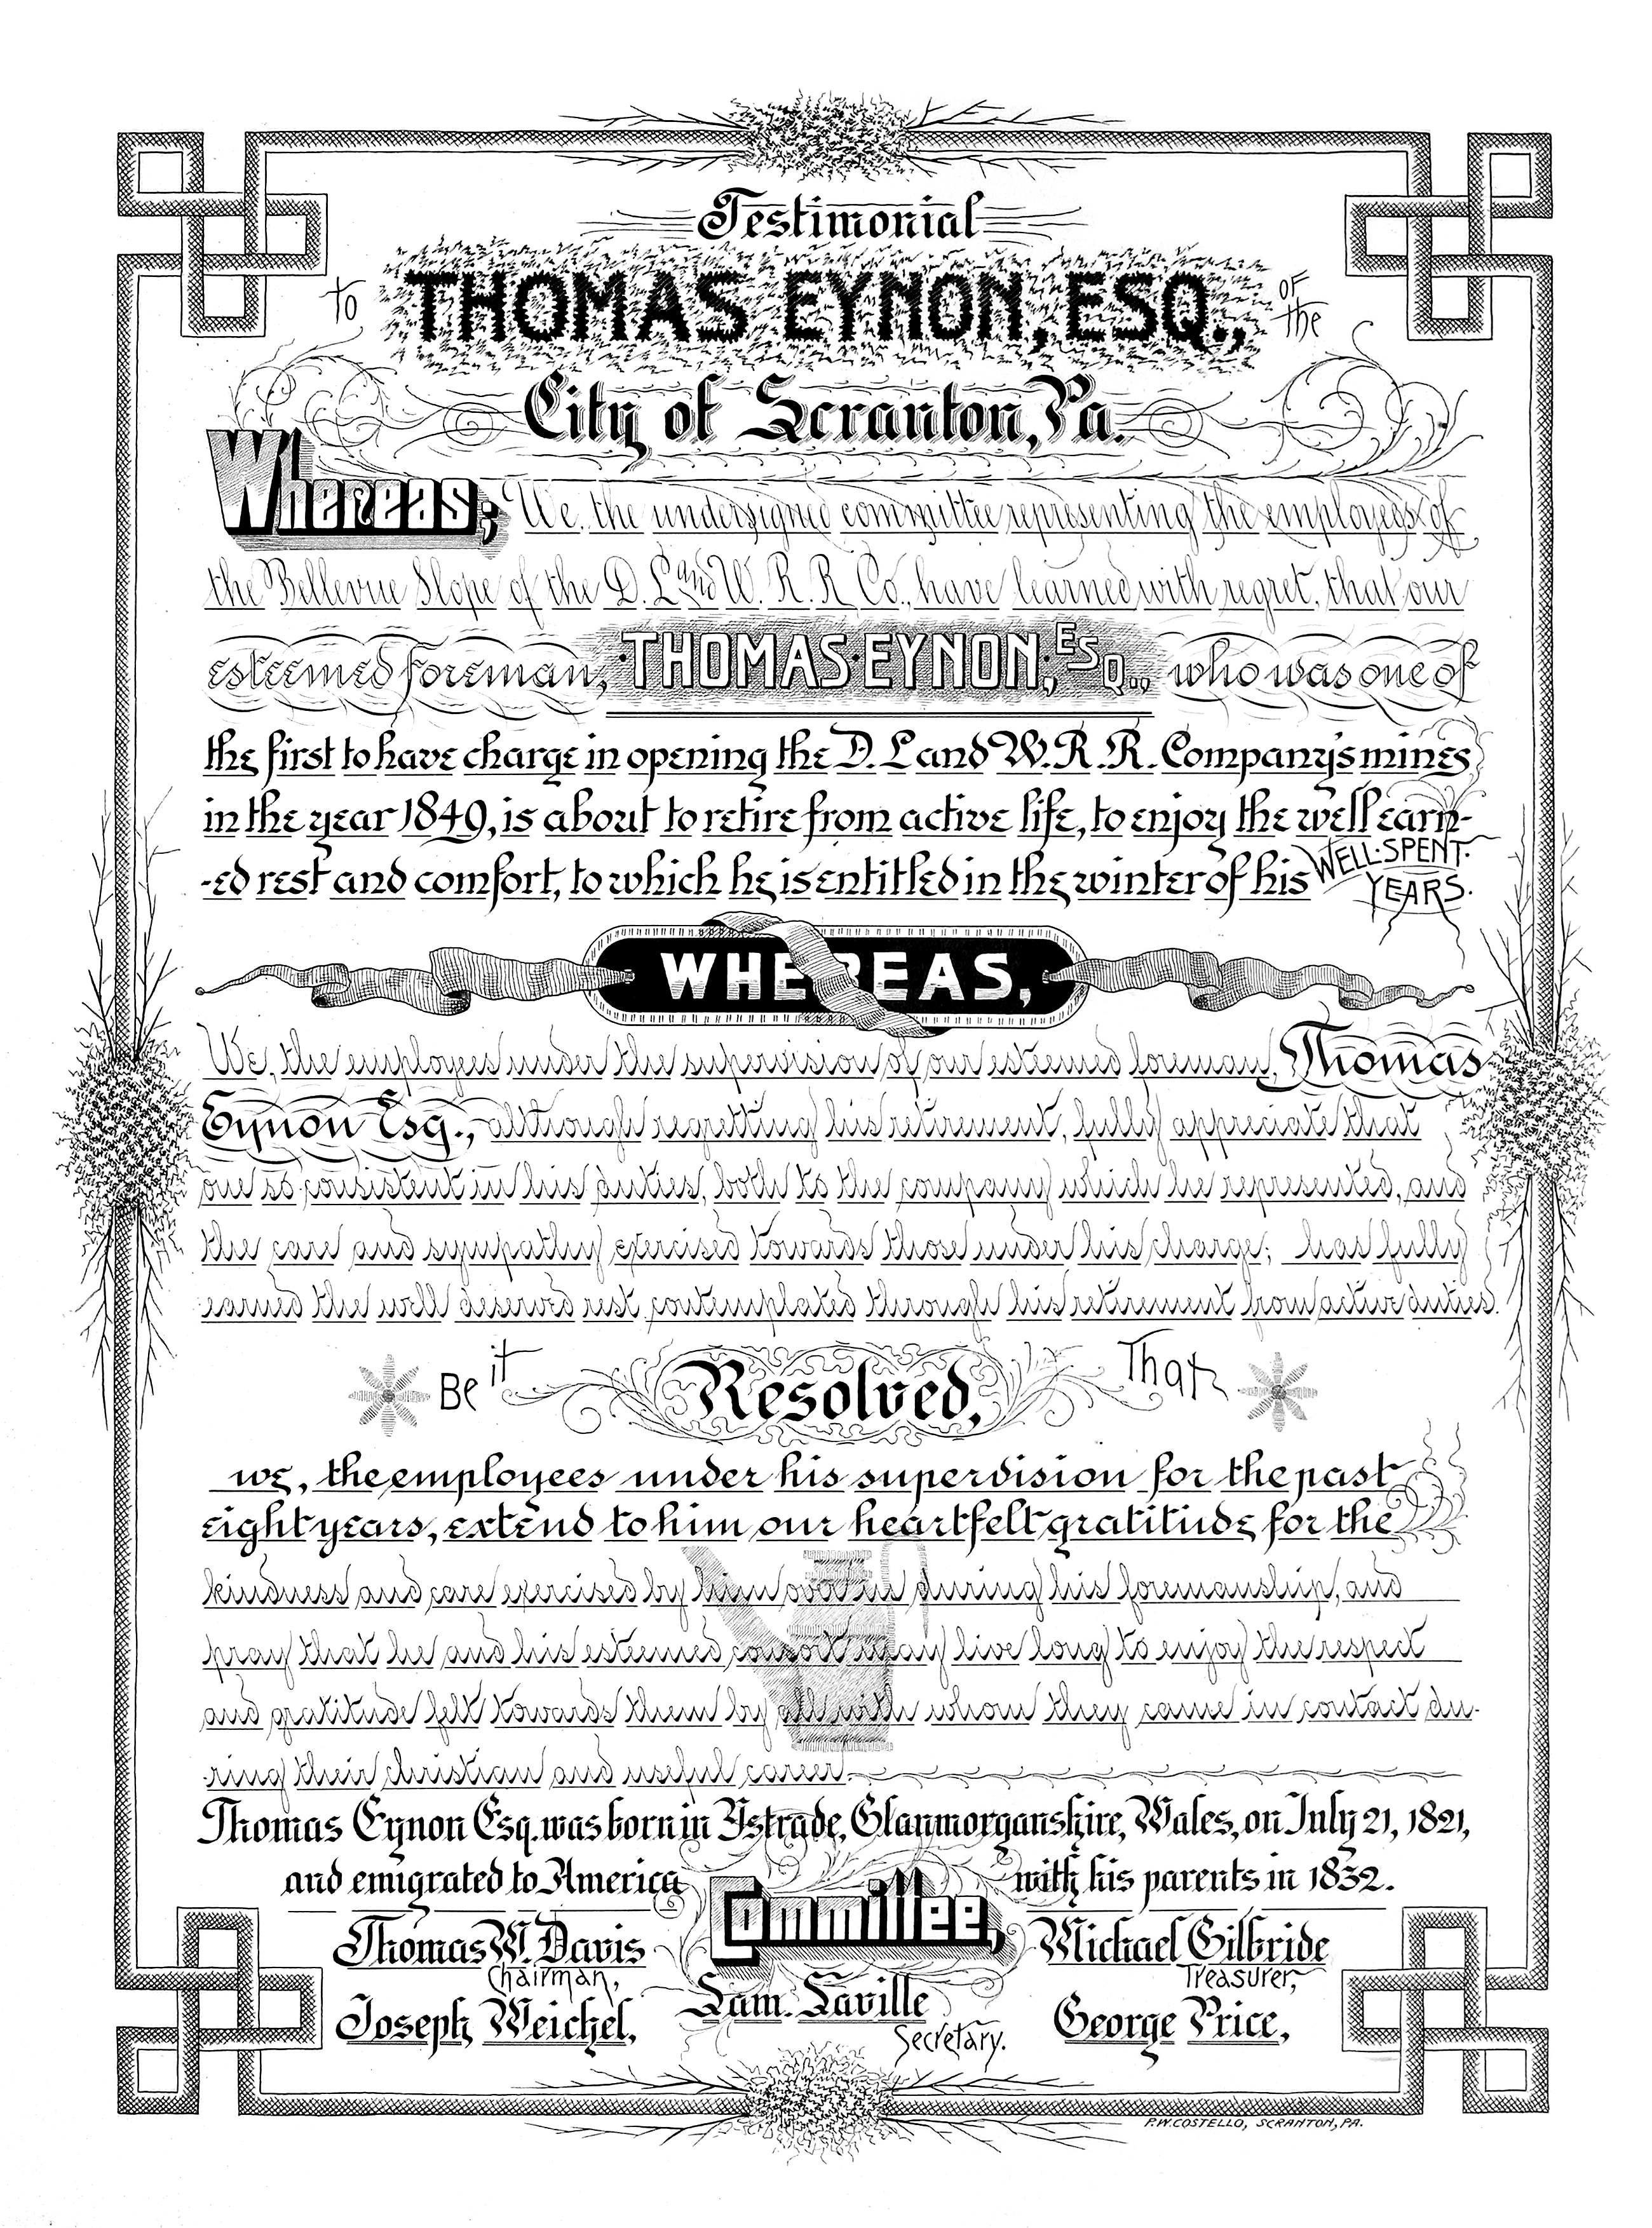 Testimonial
to THOMAS EYNON, ESQ., OF the
City of Scranton, Pa.
Whereas; We, the undersigned committee representing the employees of
the Bellevue Slope of the D. L. and W. R. R. Co., have learned with regret, that our
esteemed foreman, THOMAS EYNON, ESQ., who was one of
the first to have charge in opening the D. L and W. R. R. Company's mines
in the year 1849, is about to retire from active life, to enjoy the well earn-
-ed rest and comfort, to which he is entitled in the winter of his WELL-SPENT YEARS.
WHEREAS,
We, the employees under the supervision of our esteemed foreman, Thomas
Eynon Esq., although regretting his retirement, fully appreciate that
one so consistent in his duties, both to the company which he represented, and
the care and sympathy exercised towards those under his charge; has fully
earned the well deserved rest contemplated through his retirement from active duties.
Be it Resolved, That
we, the employees under his supervision for the past
eight years, extend to him our heartfelt gratitude for the
kindness and care exercised by him over us during his foremanship, and
pray that he and his esteemed consort may live long to enjoy the respect
and gratitude felt towards them by all with whom they came in contact du-
-ring their christian and useful career.
Thomas Eynon Esq. was born in Ystrade, Glanmorganshire, Wales, on July 21, 1821,
and emigrated to America with his parents in 1832.
Committee,
Thomas W. Davis Michael Gilbride
Chairman, Treasurer,
Joseph Weichel, Sam. Saville George Price,
Secretary.
P.W. COSTELLO, SCRANTON, PA.